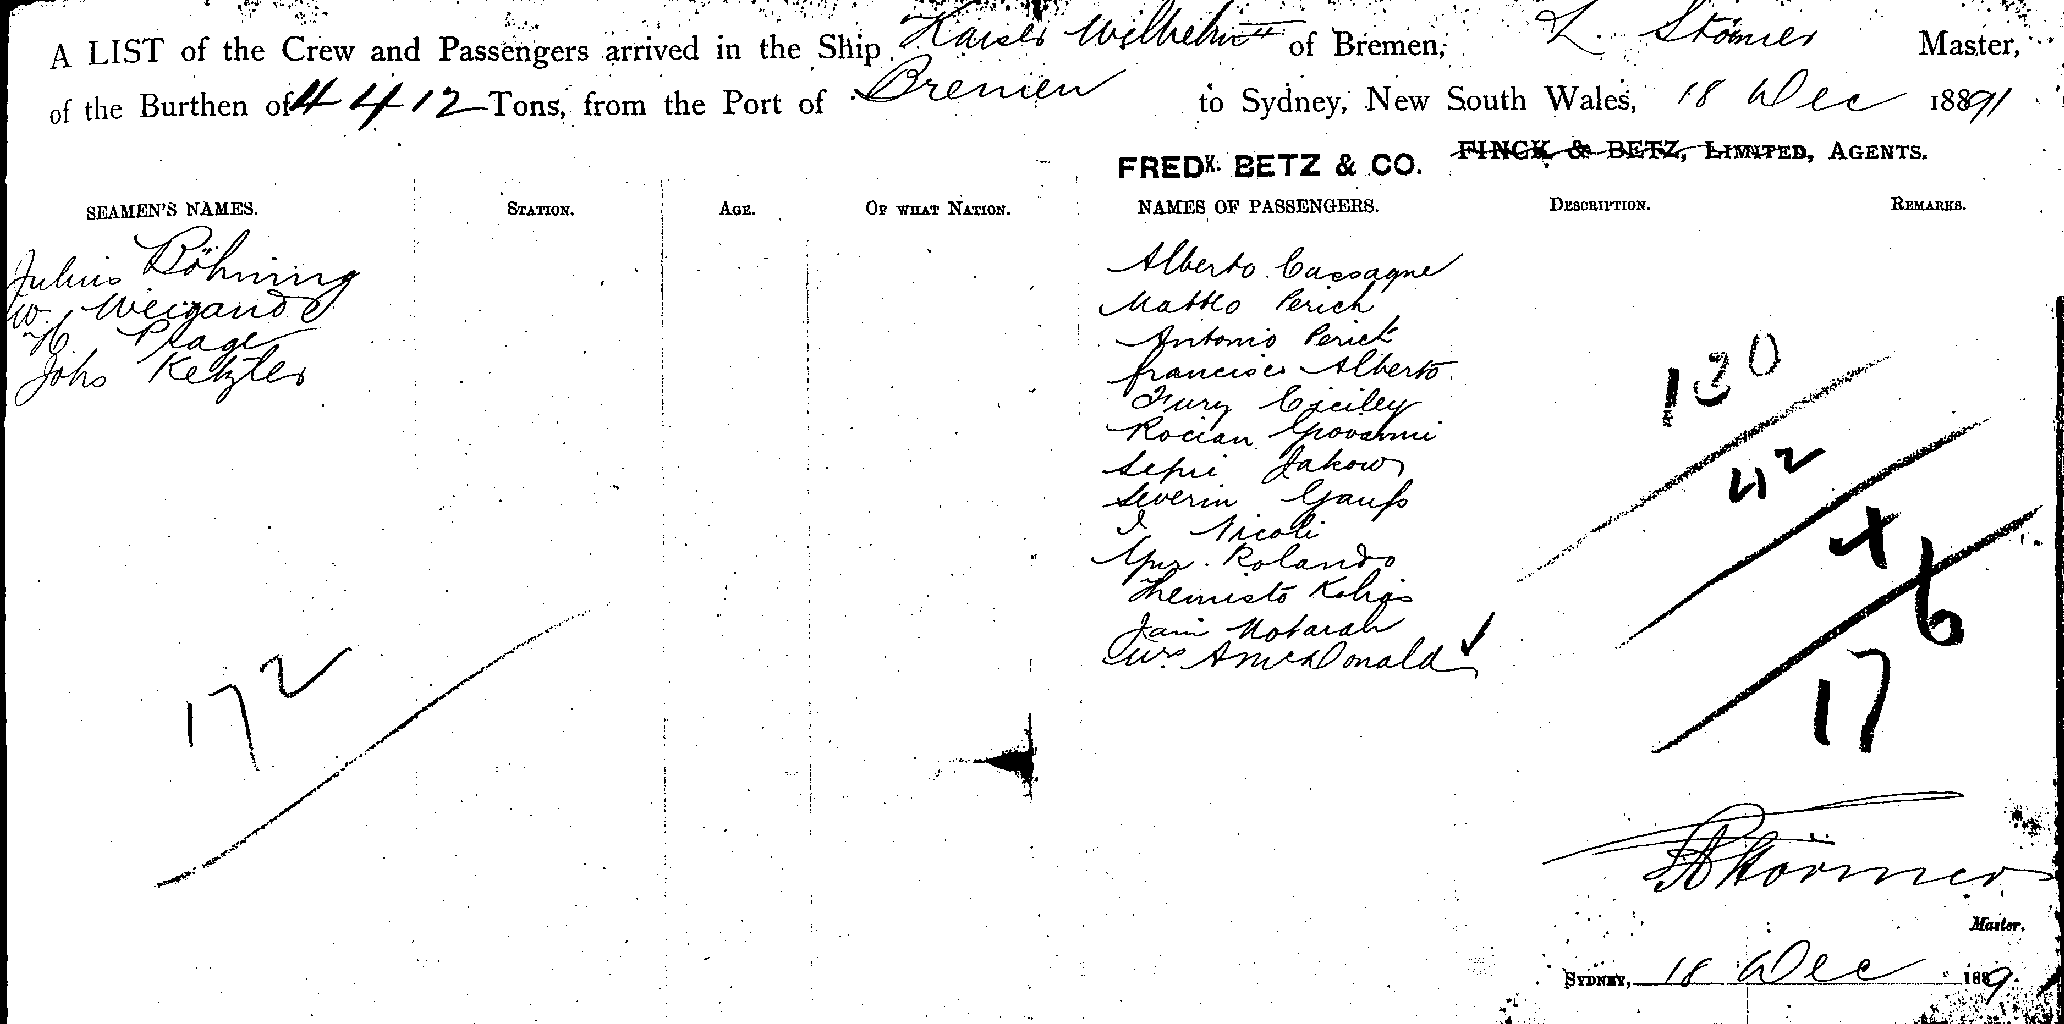 A LIST of the Crew and Passengers arrived in the Ship Kaiser Wilhelm II of Bremen, L. Störmer Master,
of the Burthen of 4412 Tons, from the Port of Bremen to Sydney, New South Wales, 18 Dec 1891
FREDK. BETZ & CO. FINCK & BETZ, LIMITED, AGENTS.
SEAMEN'S NAMES. STATION. AGE. OF WHAT NATION. NAMES OF PASSENGERS. DESCRIPTION. REMARKS.
Julius Böhning
W. Weigand
H Plage
Johs Ketzler
172
Alberto Cassagne
Matteo Perich
Antonio Perich
Francisco Alberto
Fury Ciciley
Rocian Giovanni
Sepri Jakow
Severin Gauß
I Nicoli
Rolando
Themisto Kolias
Jani Motarah
Mrs A McDonald
130
42
4
6
17
Störmer
Master.
SYDNEY, 18 Dec 1889